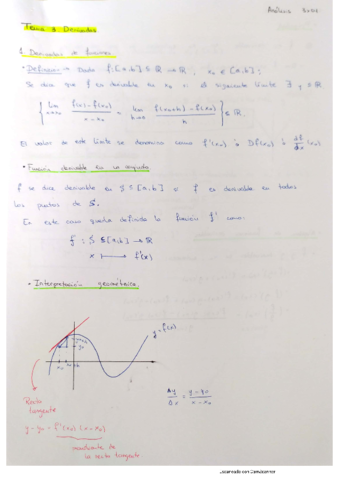 Tema 3 Derivadas
1. Derivadas de funciones
• Definición → Dada f: [a,b] ⊆ ℝ → ℝ, x₀ ∈ [a,b];
Se dice que f es derivable en x₀ si el siguiente límite ∃ y ∈ ℝ
{ lim x→x₀ f(x) - f(x₀) / x - x₀ = lim h→0 f(x₀+h) - f(x₀) / h } ∈ ℝ
El valor de este límite se denomina como f'(x₀) ó Df(x₀) ó df/dx (x₀)
• Función derivable en un conjunto
f se dice derivable en S ⊆ [a,b] si f es derivable en todos
los puntos de S.
En este caso queda definida la función f' como:
f: S ⊆ [a,b] → ℝ
x ↦ f'(x)
• Interpretación geométrica
y = f(x)
Recta
tangente
Δy/Δx = y - y₀ / x - x₀
y - y₀ = f'(x₀) (x - x₀)
pendiente de
la recta tangente